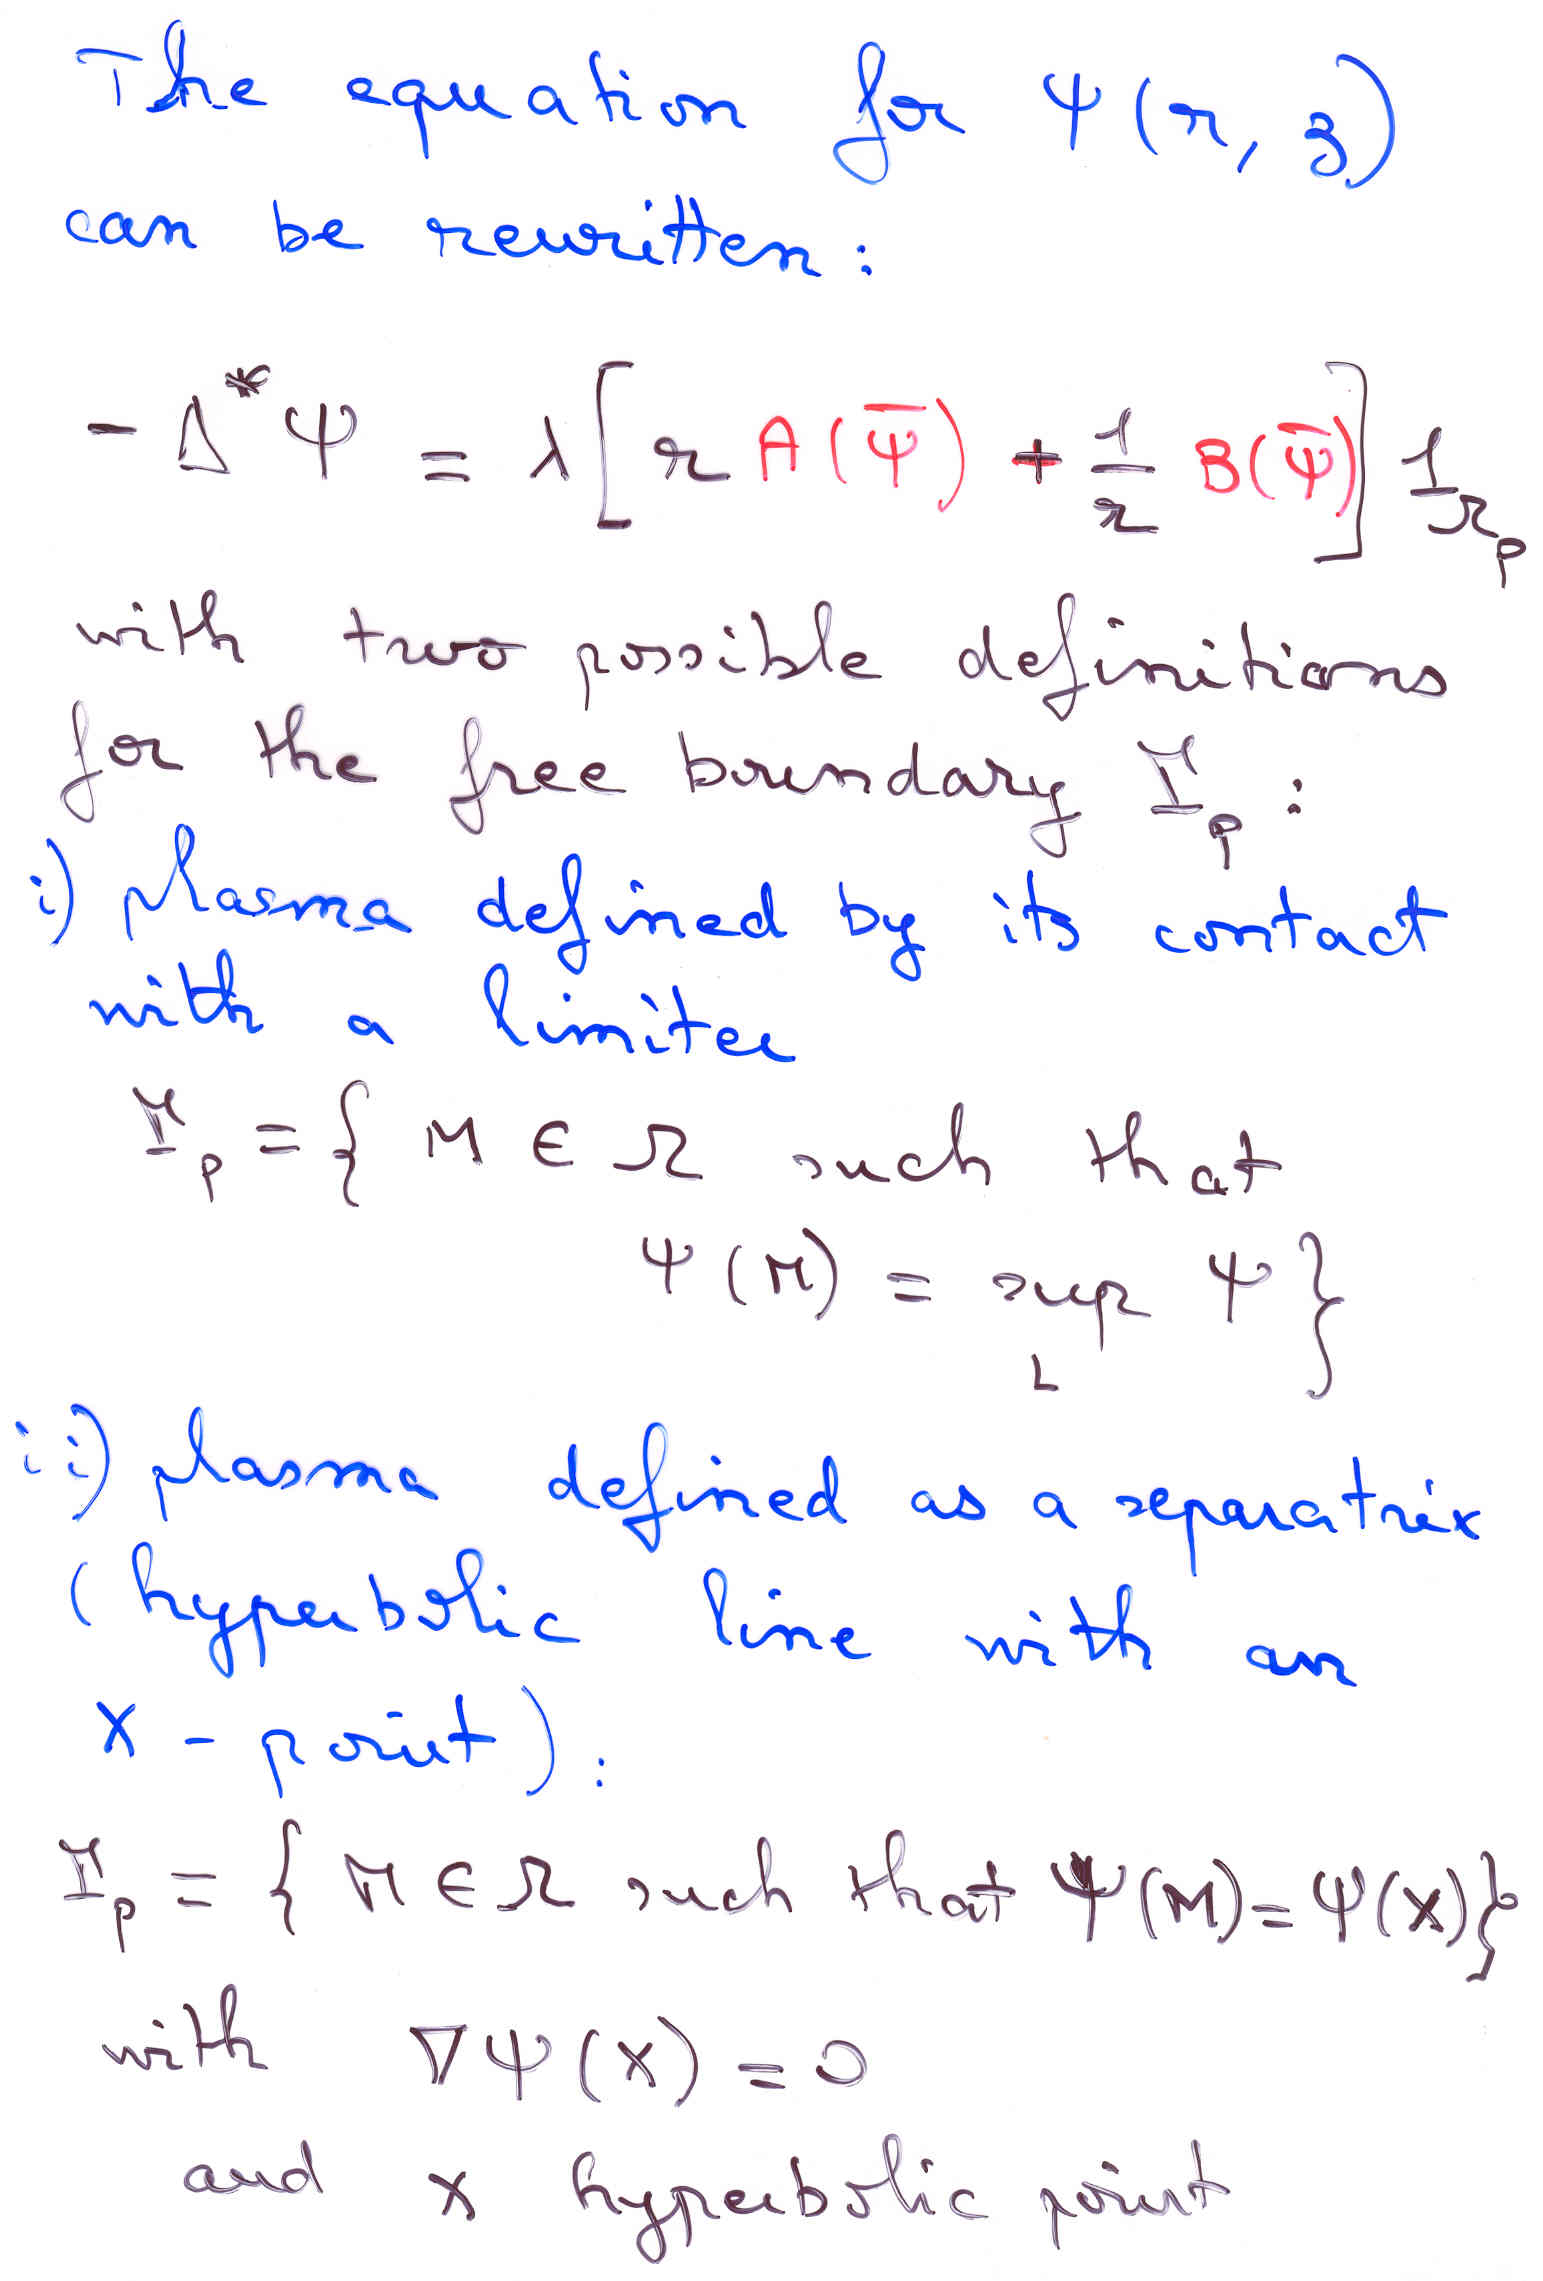 The equation for Ψ(r, z)
can be rewritten:
- Δ* Ψ = λ [ r A(Ψ̄) + 1/r B(Ψ̄) ] 1_Ωp
with two possible definitions
for the free boundary Γp :
i) plasma defined by its contact
with a limiter
Γp = { M ∈ Ω such that
Ψ (M) = sup_L Ψ }
ii) plasma defined as a separatrix
(hyperbolic line with an
X - point) :
Γp = { M ∈ Ω such that Ψ(M) = Ψ(X) }
with ∇Ψ(X) = 0
and X hyperbolic point